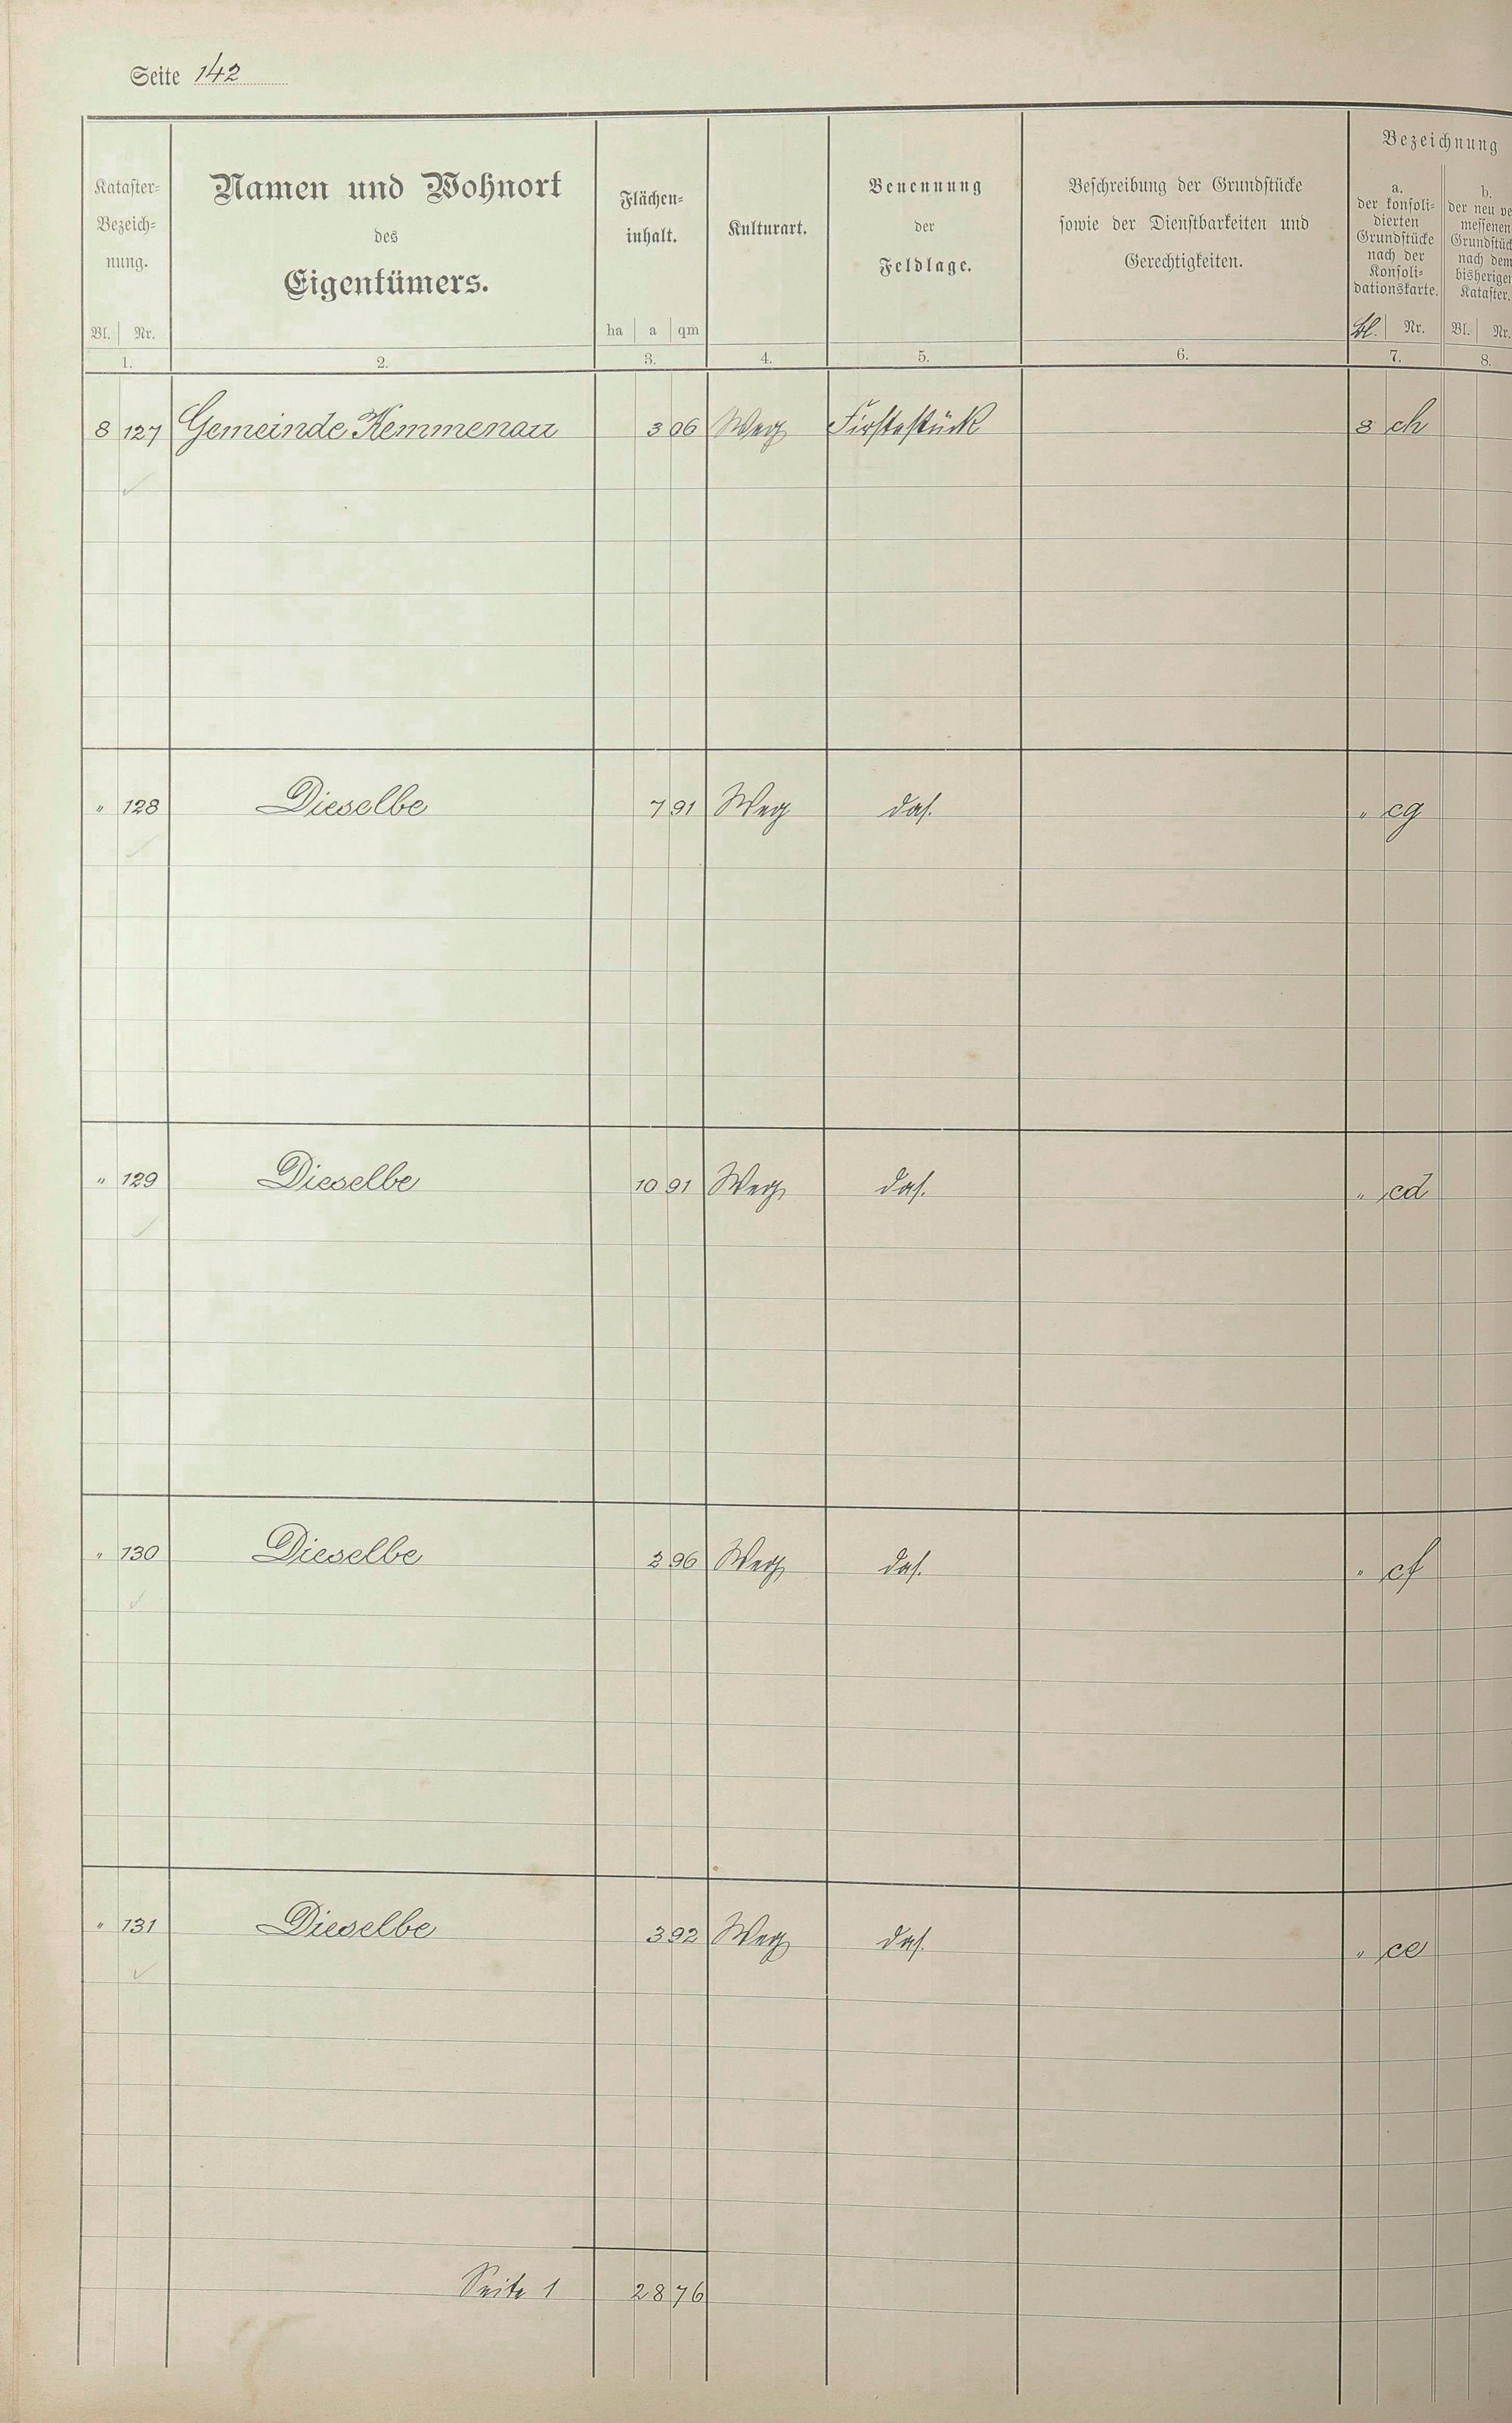 Seite 142
Kataster-
Bezeich-
nung.
Bl. Nr.
1.
Namen und Wohnort
des
Eigentümers.
2.
Flächen-
inhalt.
ha a qm
3.
Kulturart.
4.
Benennung
der
Feldlage.
5.
Beschreibung der Grundstücke
sowie der Dienstbarkeiten und
Gerechtigkeiten.
6.
Bezeichnung
a.
der konsoli-
dierten
Grundstücke
nach der
Konsoli-
dationskarte.
Bl. Nr.
7.
b.
der neu ve
messenen
Grundstück
nach dem
bisherigen
Kataster.
Bl. Nr.
8.
8 127 Gemeinde Kemmenau 3 06 Weg Firstestück 8 ch
" 128 Dieselbe 7 91 Weg das. " cg
" 129 Dieselbe 10 91 Weg das. " cd
" 130 Dieselbe 2 96 Weg das. " cf
" 131 Dieselbe 3 92 Weg das. " ce
Seite 1 28 76